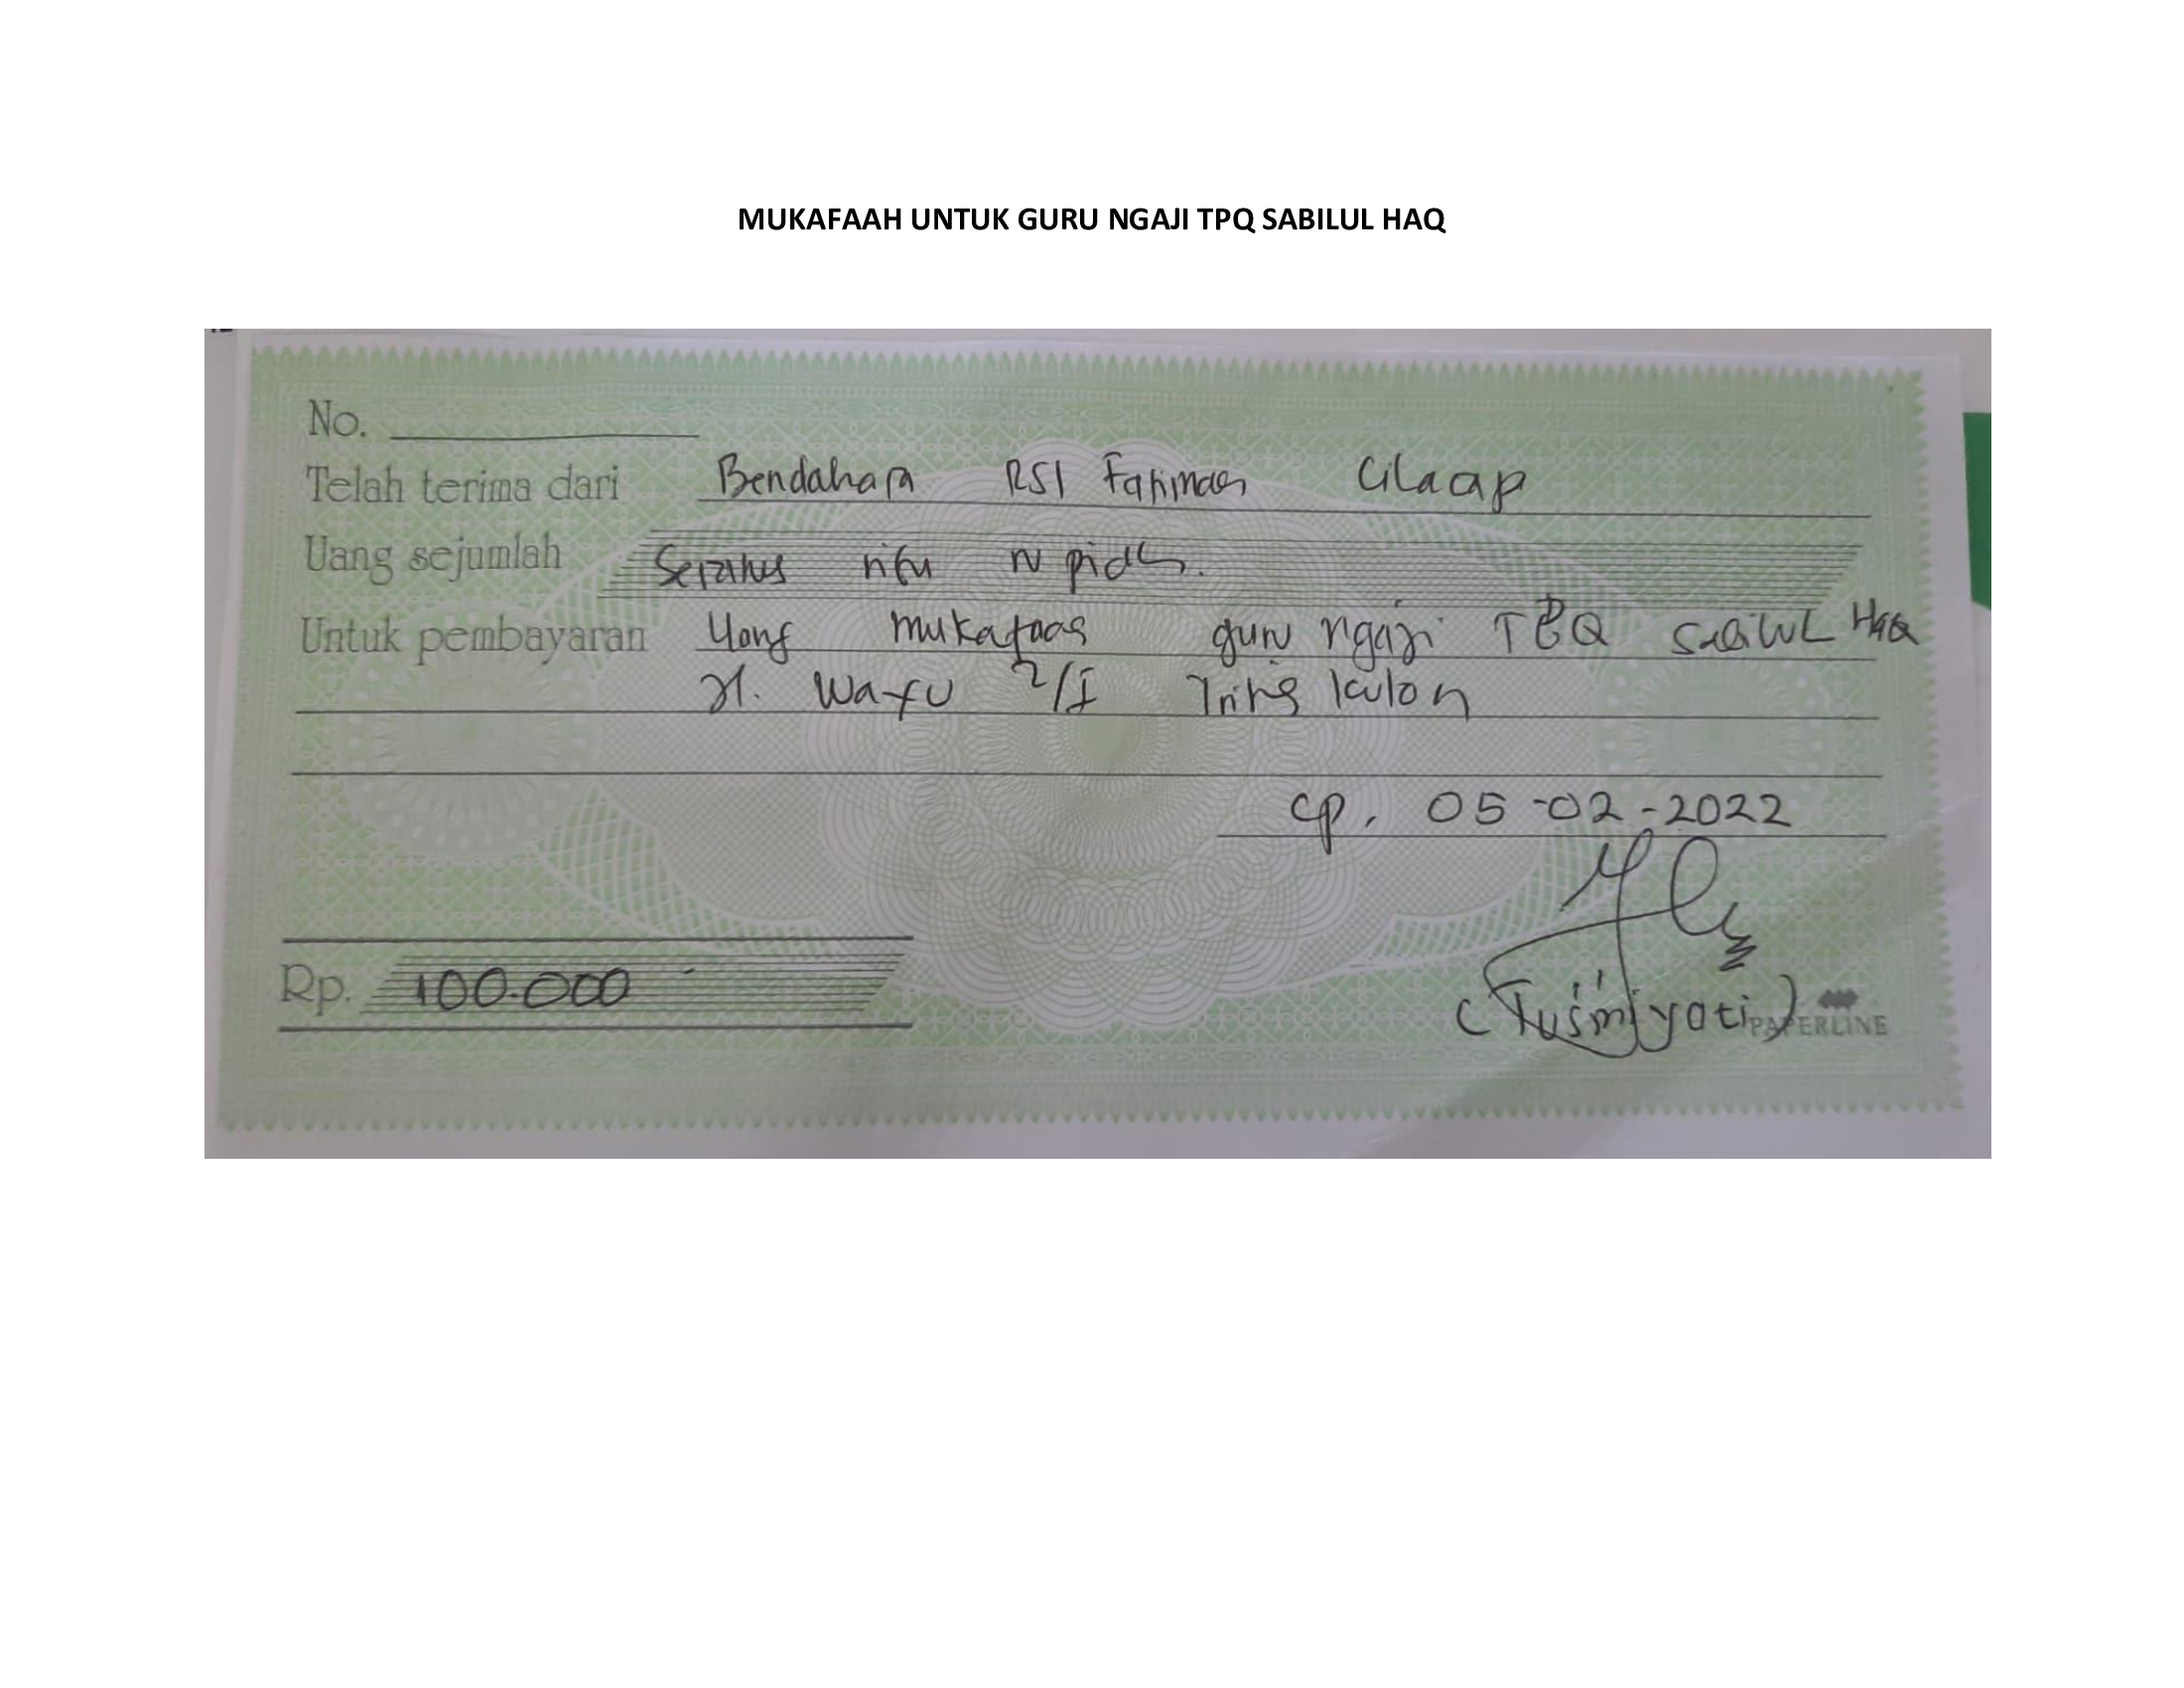 MUKAFAAH UNTUK GURU NGAJI TPQ SABILUL HAQ
No.
Telah terima dari Bendahara RSI Fatimah Cilacap
Uang sejumlah Seratus ribu rupiah.
Untuk pembayaran Uang mukafaah guru ngaji TPQ Sabilul Haq
Jl. 2/I kulon
cp. 05-02-2022
Rp. 100.000
(Tusmiyati)
PAPERLINE